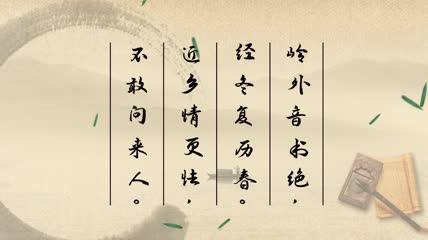 岭外音书绝，
经冬复历春。
近乡情更怯，
不敢问来人。